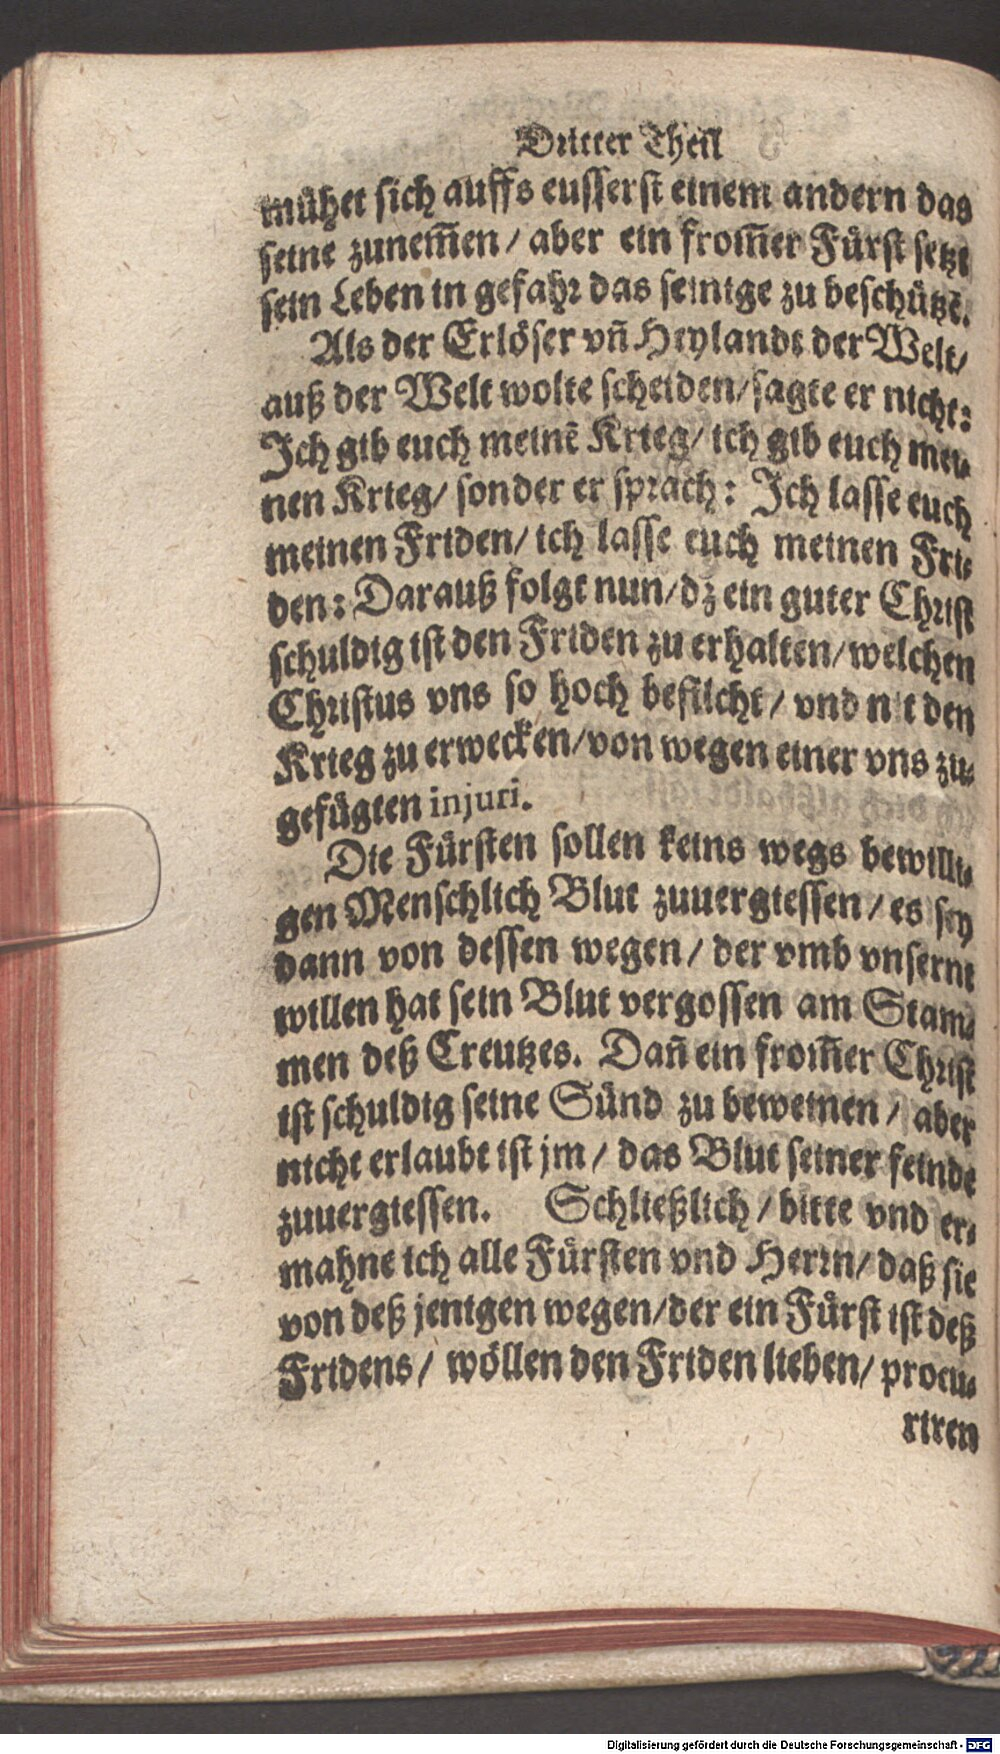 Dritter Theil
mühet sich auffs eusserst einem andern das
seine zunem̃en / aber ein from̃er Fürst setzt
sein Leben in gefahr das seinige zu beschützẽ.
Als der Erlöser vñ Heylandt der Welt/
auß der Welt wolte scheiden/sagte er nicht:
Ich gib euch meinẽ Krieg/ ich gib euch mei-
nen Krieg/ sonder er sprach: Ich lasse euch
meinen Friden/ ich lasse euch meinen Fri-
den: Darauß folgt nun/dz ein guter Christ
schuldig ist den Friden zu erhalten/welchen
Christus vns so hoch befilcht / vnd nit den
Krieg zu erwecken/von wegen einer vns zu-
gefügten injuri.
Die Fürsten sollen keins wegs bewilli-
gen Menschlich Blut zuuergiessen / es sey
dann von dessen wegen / der vmb vnsernt
willen hat sein Blut vergossen am Stam-
men deß Creutzes. Dañ ein from̃er Christ
ist schuldig seine Sünd zu beweinen / aber
nicht erlaubt ist jm / das Blut seiner feinde
zuuergiessen. Schließlich / bitte vnd er-
mahne ich alle Fürsten vnd Herrn/ daß sie
von deß jenigen wegen/der ein Fürst ist deß
Fridens / wöllen den Friden lieben/ procu-
riren
Digitalisierung gefördert durch die Deutsche Forschungsgemeinschaft - DFG